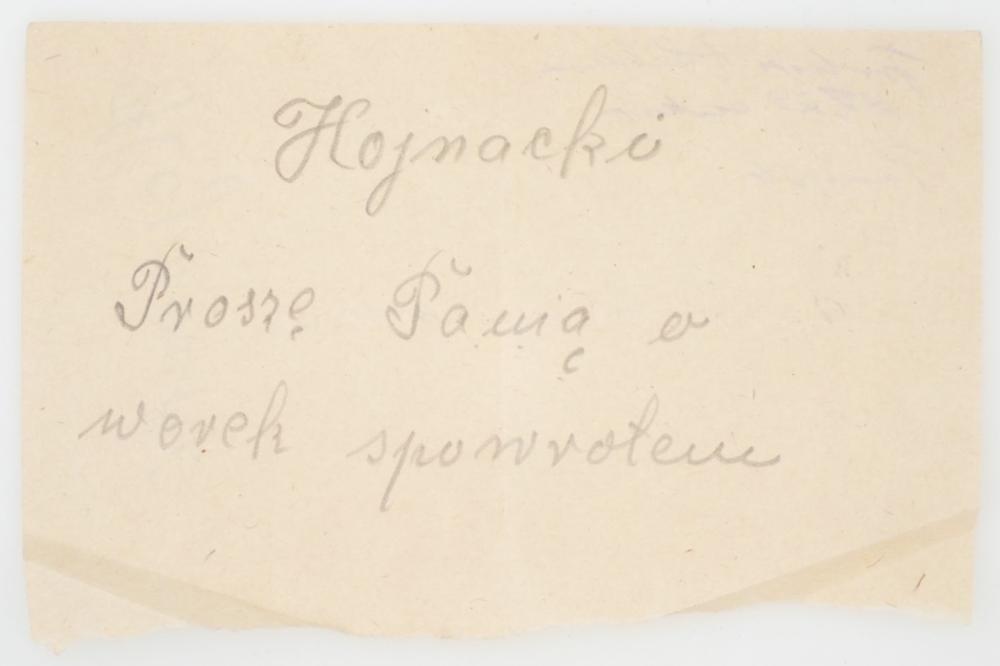 Hojnacki
Proszę Panią o
worek spowrotem